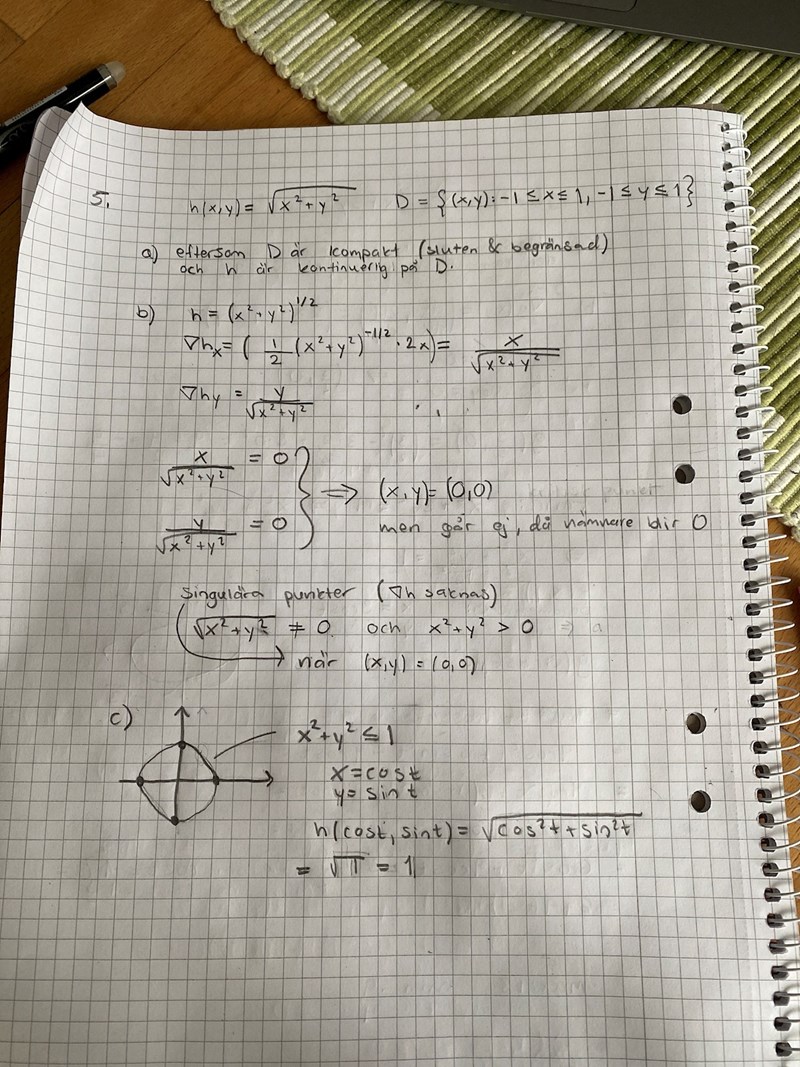 5. h(x,y) = √(x²+y²) D = {(x,y): -1 ≤ x ≤ 1, -1 ≤ y ≤ 1}
a) eftersom D är kompakt (sluten & begränsad)
och h är kontinuerlig på D.
b) h = (x²+y²)^1/2
∇hx = ( 1/2 (x²+y²)^-1/2 · 2x) = x/√(x²+y²)
∇hy = y/√(x²+y²)
x/√(x²+y²) = 0
y/√(x²+y²) = 0
} ⇒ (x,y) = (0,0)
men går ej, då nämnare blir 0
singulära punkter (∇h saknas)
√(x²+y²) ≠ 0. och x²+y² > 0
när (x,y) = (0,0)
c) x²+y² ≤ 1
x = cost
y = sint
h(cost, sint) = √(cos²t + sin²t)
= √1 = 1